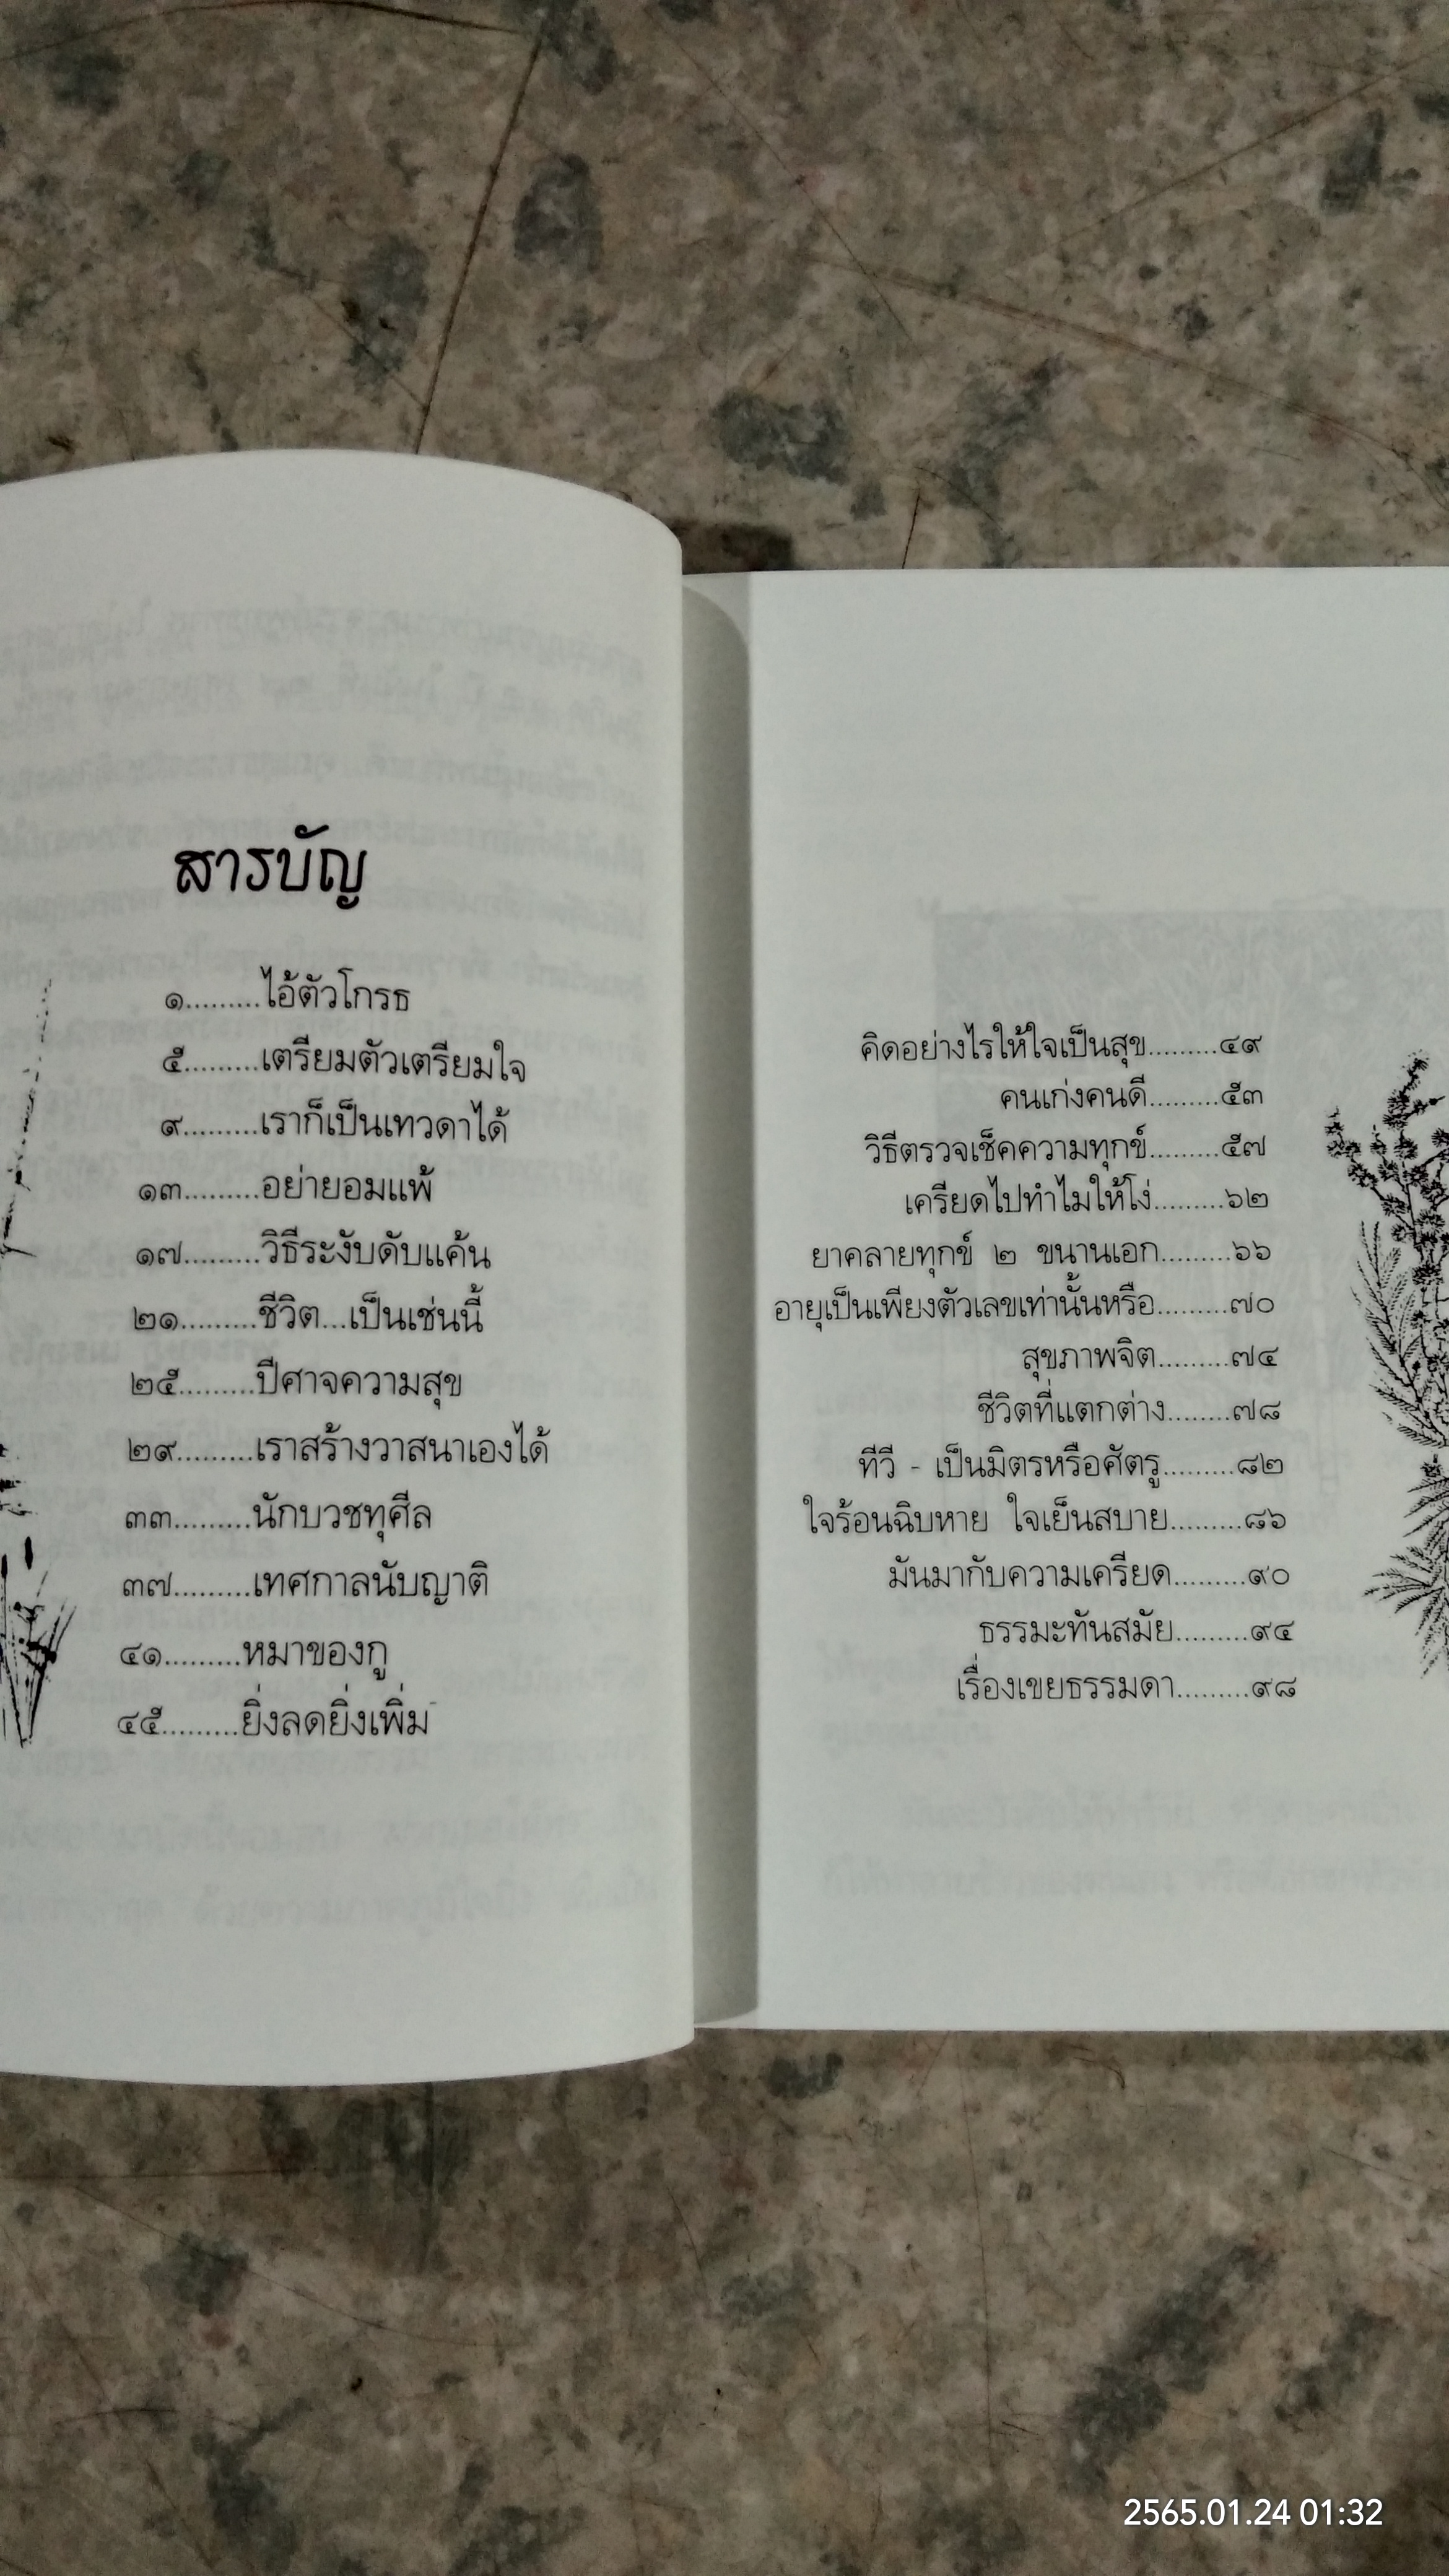 สารบัญ
๑.........ไอ้ตัวโกรธ
๕.........เตรียมตัวเตรียมใจ
๙.........เราก็เป็นเทวดาได้
๑๓.........อย่ายอมแพ้
๑๗.........วิธีระงับดับแค้น
๒๑.........ชีวิต...เป็นเช่นนี้
๒๕.........ปีศาจความสุข
๒๙.........เราสร้างวาสนาเองได้
๓๓.........นักบวชทุศีล
๓๗.........เทศกาลนับญาติ
๔๑.........หมาของกู
๔๕.........ยิ่งลดยิ่งเพิ่ม
คิดอย่างไรให้ใจเป็นสุข.........๔๙
คนเก่งคนดี.........๕๓
วิธีตรวจเช็คความทุกข์.........๕๗
เครียดไปทำไมให้โง่.........๖๒
ยาคลายทุกข์ ๒ ขนานเอก.........๖๖
อายุเป็นเพียงตัวเลขเท่านั้นหรือ.........๗๐
สุขภาพจิต.........๗๔
ชีวิตที่แตกต่าง........๗๘
ทีวี - เป็นมิตรหรือศัตรู.........๘๒
ใจร้อนฉิบหาย ใจเย็นสบาย.........๘๖
มันมากับความเครียด.........๙๐
ธรรมะทันสมัย.........๙๔
เรื่องเขยธรรมดา.........๙๘
2565.01.24 01:32